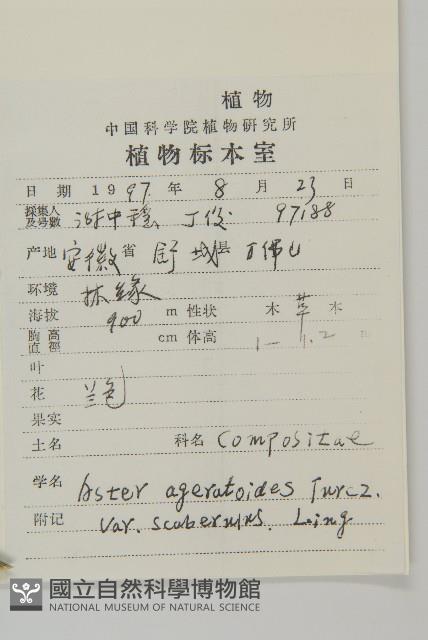 植物
中国科学院植物研究所
植物标本室
日期 1997 年 8 月 23 日
採集人及号數 谢中稳、丁俊 97188
产地 安徽省 舒城县 万佛山
环境 林缘
海拔 900 m 性状 木 草 木
胸高直徑 cm 体高 1—1.2
叶
花 兰色
果实
土名 科名 Compositae
学名 Aster ageratoides Turcz.
附记 var. scaberulus. Ling
國立自然科學博物館
NATIONAL MUSEUM OF NATURAL SCIENCE